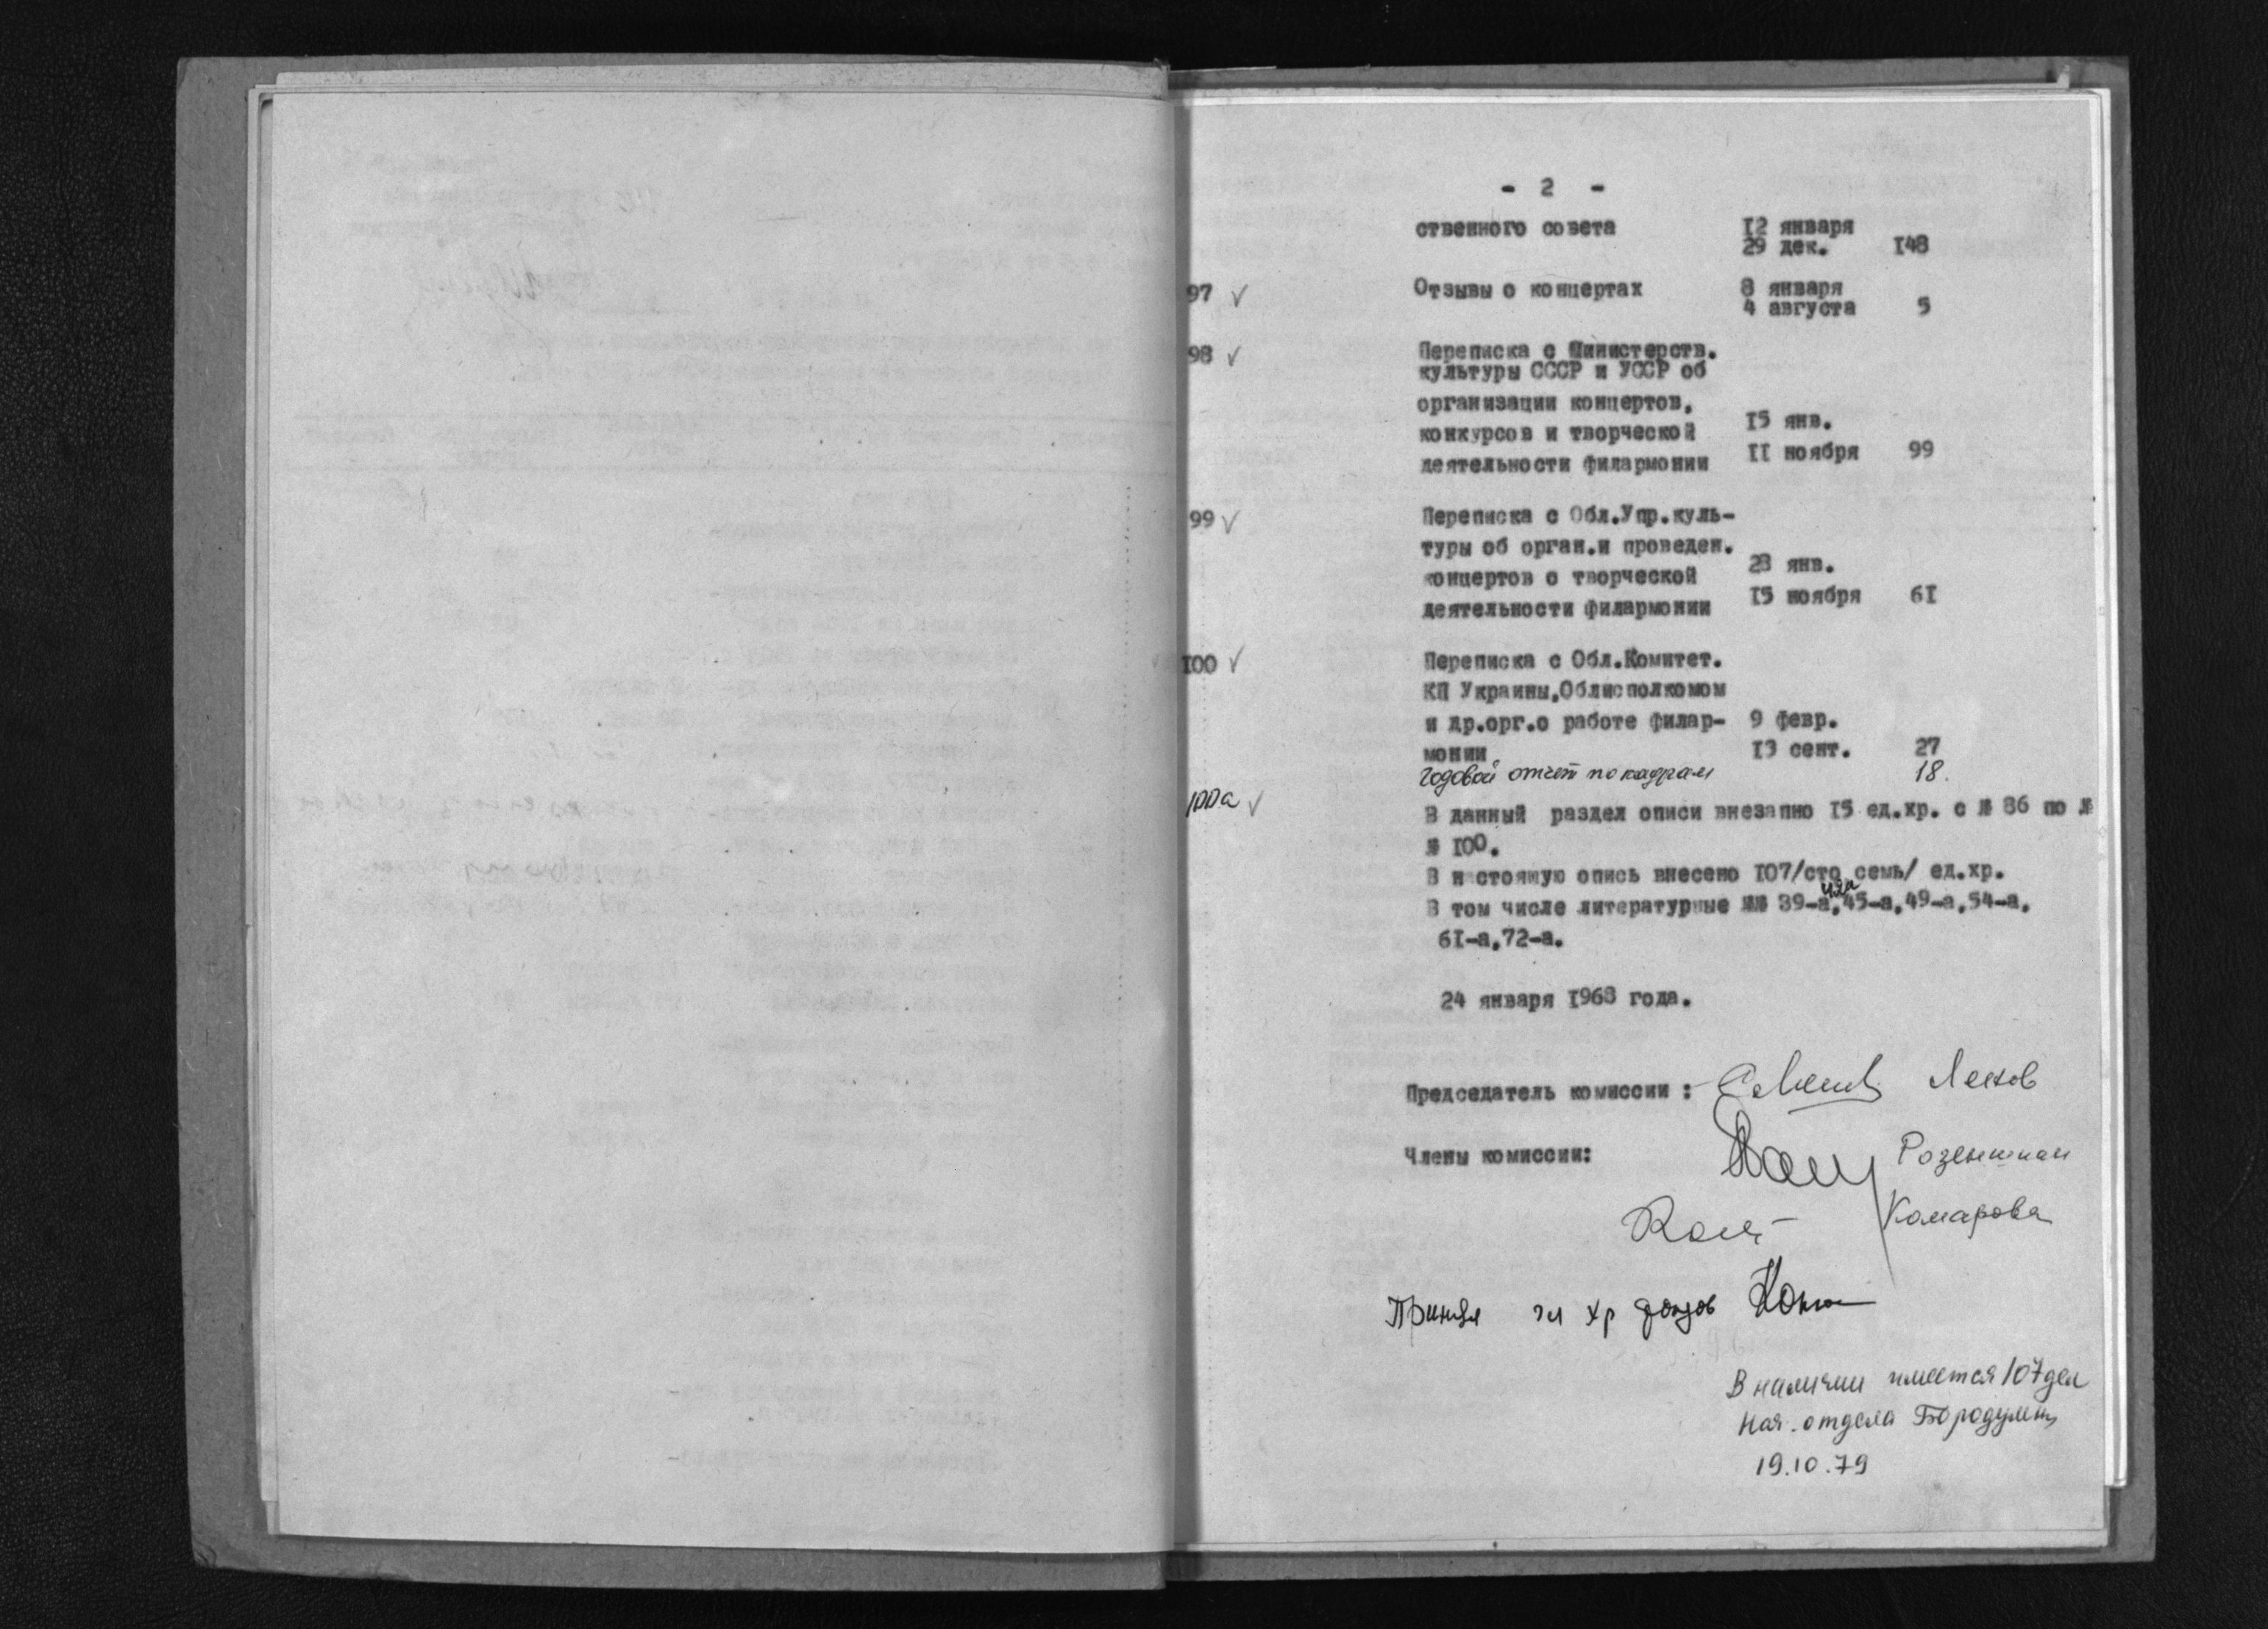 - 2 -
ственного совета 12 января
29 дек. 148
97 ✓ Отзывы о концертах 8 января
4 августа 5
98 ✓ Переписка с Министерств.
культуры СССР и УССР об
организации концертов,
конкурсов и творческой 15 янв.
деятельности филармонии 11 ноября 99
99 ✓ Переписка с Обл.Упр.куль-
туры об орган.и проведен.
концертов о творческой 23 янв.
деятельности филармонии 15 ноября 61
100 ✓ Переписка с Обл.Комитет.
КП Украины,Облисполкомом
и др.орг.о работе филар- 9 февр.
монии 13 сент. 27
100а ✓ Годовой отчет по кадрам 18.
В данный раздел описи внезапно 15 ед.хр. с № 86 по №
№ 100.
В настоящую опись внесено 107/сто семь/ ед.хр.
42а
В том числе литературные №№ 39-а,45-а,49-а,54-а,
61-а,72-а.
24 января 1968 года.
Председатель комиссии : Лехов
Члены комиссии: Розенштан
Комарова
Принял гл хр фондов
В наличии имеется 107 дел
Нач. отдела
19.10.79